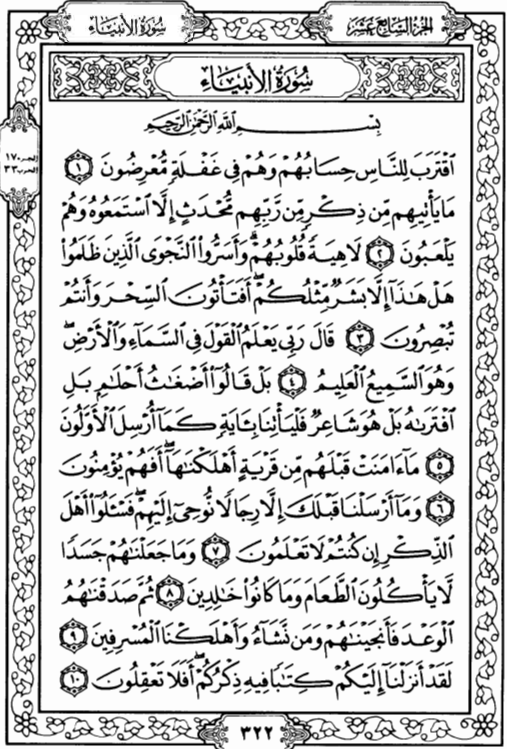 الجزء السابع عشر
سورة الأنبياء
سُورَةُ الأَنبِيَاء
بِسْمِ اللَّهِ الرَّحْمَٰنِ الرَّحِيمِ
الجزء ١٧
الحزب ٣٣
اقْتَرَبَ لِلنَّاسِ حِسَابُهُمْ وَهُمْ فِي غَفْلَةٍ مُّعْرِضُونَ ١
مَا يَأْتِيهِم مِّن ذِكْرٍ مِّن رَّبِّهِم مُّحْدَثٍ إِلَّا اسْتَمَعُوهُ وَهُمْ
يَلْعَبُونَ ٢ لَاهِيَةً قُلُوبُهُمْ ۗ وَأَسَرُّوا النَّجْوَى الَّذِينَ ظَلَمُوا
هَلْ هَٰذَا إِلَّا بَشَرٌ مِّثْلُكُمْ ۖ أَفَتَأْتُونَ السِّحْرَ وَأَنتُمْ
تُبْصِرُونَ ٣ قَالَ رَبِّي يَعْلَمُ الْقَوْلَ فِي السَّمَاءِ وَالْأَرْضِ ۖ
وَهُوَ السَّمِيعُ الْعَلِيمُ ٤ بَلْ قَالُوا أَضْغَاثُ أَحْلَامٍ بَلِ
افْتَرَاهُ بَلْ هُوَ شَاعِرٌ فَلْيَأْتِنَا بِآيَةٍ كَمَا أُرْسِلَ الْأَوَّلُونَ
٥ مَا آمَنَتْ قَبْلَهُم مِّن قَرْيَةٍ أَهْلَكْنَاهَا ۖ أَفَهُمْ يُؤْمِنُونَ
٦ وَمَا أَرْسَلْنَا قَبْلَكَ إِلَّا رِجَالًا نُّوحِي إِلَيْهِمْ ۖ فَسْئَلُوا أَهْلَ
الذِّكْرِ إِن كُنتُمْ لَا تَعْلَمُونَ ٧ وَمَا جَعَلْنَاهُمْ جَسَدًا
لَّا يَأْكُلُونَ الطَّعَامَ وَمَا كَانُوا خَالِدِينَ ٨ ثُمَّ صَدَقْنَاهُمُ
الْوَعْدَ فَأَنجَيْنَاهُمْ وَمَن نَّشَاءُ وَأَهْلَكْنَا الْمُسْرِفِينَ ٩
لَقَدْ أَنزَلْنَا إِلَيْكُمْ كِتَابًا فِيهِ ذِكْرُكُمْ ۖ أَفَلَا تَعْقِلُونَ ١٠
٣٢٢